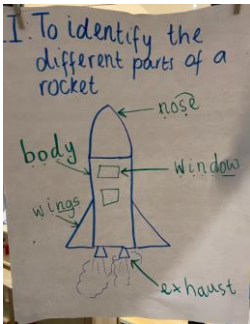 I. To identify the
different parts of a
rocket
nose
body
window
wings
exhaust